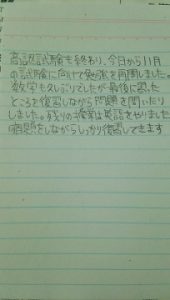 高認試験も終わり、今日から11月
の試験に向けて勉強を再開しました。
数学も久しぶりでしたが最後に習った
ところを復習しながら問題を聞いたり
しました。残りの授業は英語をやりました
宿題をしながらしっかり復習してきます